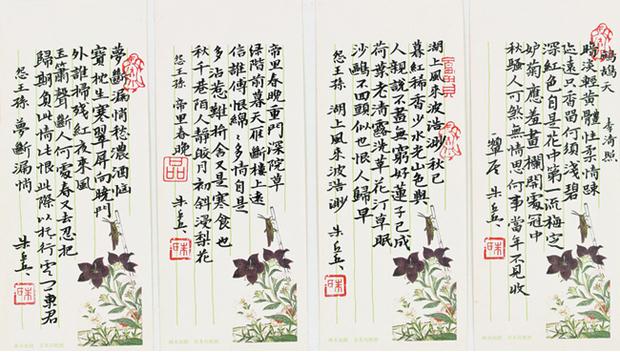 鷓鴣天 李清照
暗淡輕黃體性柔情疎
迹遠只香留何須淺碧
深紅色自是花中第一流梅定
妒菊應羞畫欄開處冠中
秋騷人可煞無情思何事當年不見收
朱兵
湖上風來波浩渺秋已
暮紅稀香少水光山色與
人親說不盡無窮好蓮子已成
荷葉老清露洗花汀草眠
沙鷗不回頭似也恨人歸早
怨王孫 湖上風來波浩渺 朱兵
帝里春晚重門深院草
綠階前暮天雁斷樓上遠
信誰傳恨綿々多情自是
多沾惹難拚舍又是寒食也
秋千巷陌人靜皎月初斜浸梨花
怨王孫 帝里春晚 朱兵
夢斷漏悄愁濃酒惱
寶枕生寒翠屏向曉門
外誰掃殘紅夜來風
玉簫聲斷人何處春又去忍把
歸期負此情此恨此際以托行雲问東君
怨王孫 夢斷漏悄 朱兵